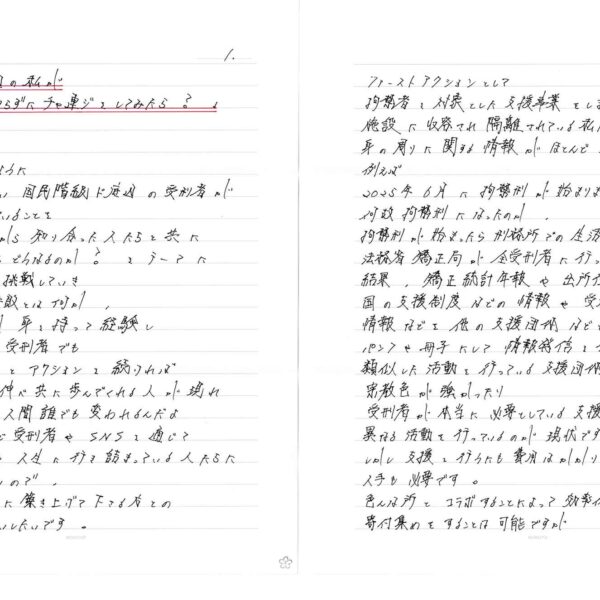 1.
の私が
らずにチャ連ジをしてみたら?
うに
国民階級ド底辺の受刑者が
ていることを
知り合った人たちと共に
どうなるのか?をテーマに
挑戦していき
敗とは何か、
身を持って経験し
受刑者でも
とアクションを続ければ
共に歩んでくれる人が現れ
人間誰でも変われるんだよ
受刑者やSNSを通じて
人生に行き詰まっている人たちに
ので、
に築き上げて下さる方との
いしたいです。
ファーストアクションとして
拘禁者を対象とした支援事業をしま
施設に収容され隔離されている私
身の周りに関する情報がほとんど
例えば
2025年6月に拘禁刑が始まりま
何故拘禁刑になったのか、
拘禁刑が始まったら刑務所での生活
法務省矯正局が全受刑者に行っ
結果、矯正統計年報や出所
国の支援制度などの情報や受
情報などを他の支援団体など
パンフや冊子にして情報発信を
類似した活動を行っている支援団体
宗教色が強かったり
受刑者が本当に必要としている支援
異なる活動を行っているのが現状です
しかし支援を行うにも費用はかかり
人手も必要です。
色んな所とコラボすることによって効率
寄付集めをすることは可能ですが